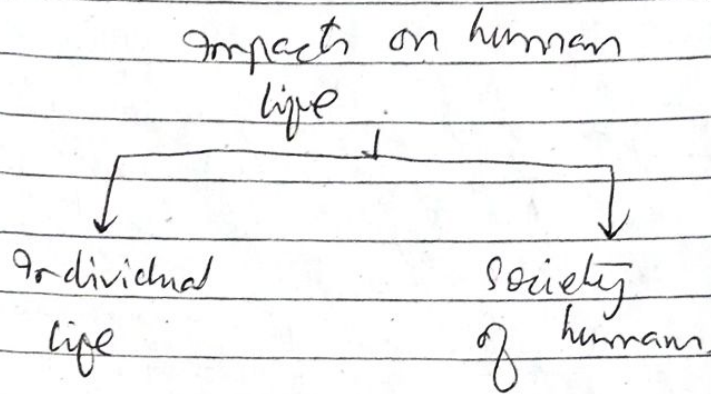 Impacts on human
life
Individual
life
Society
of humans